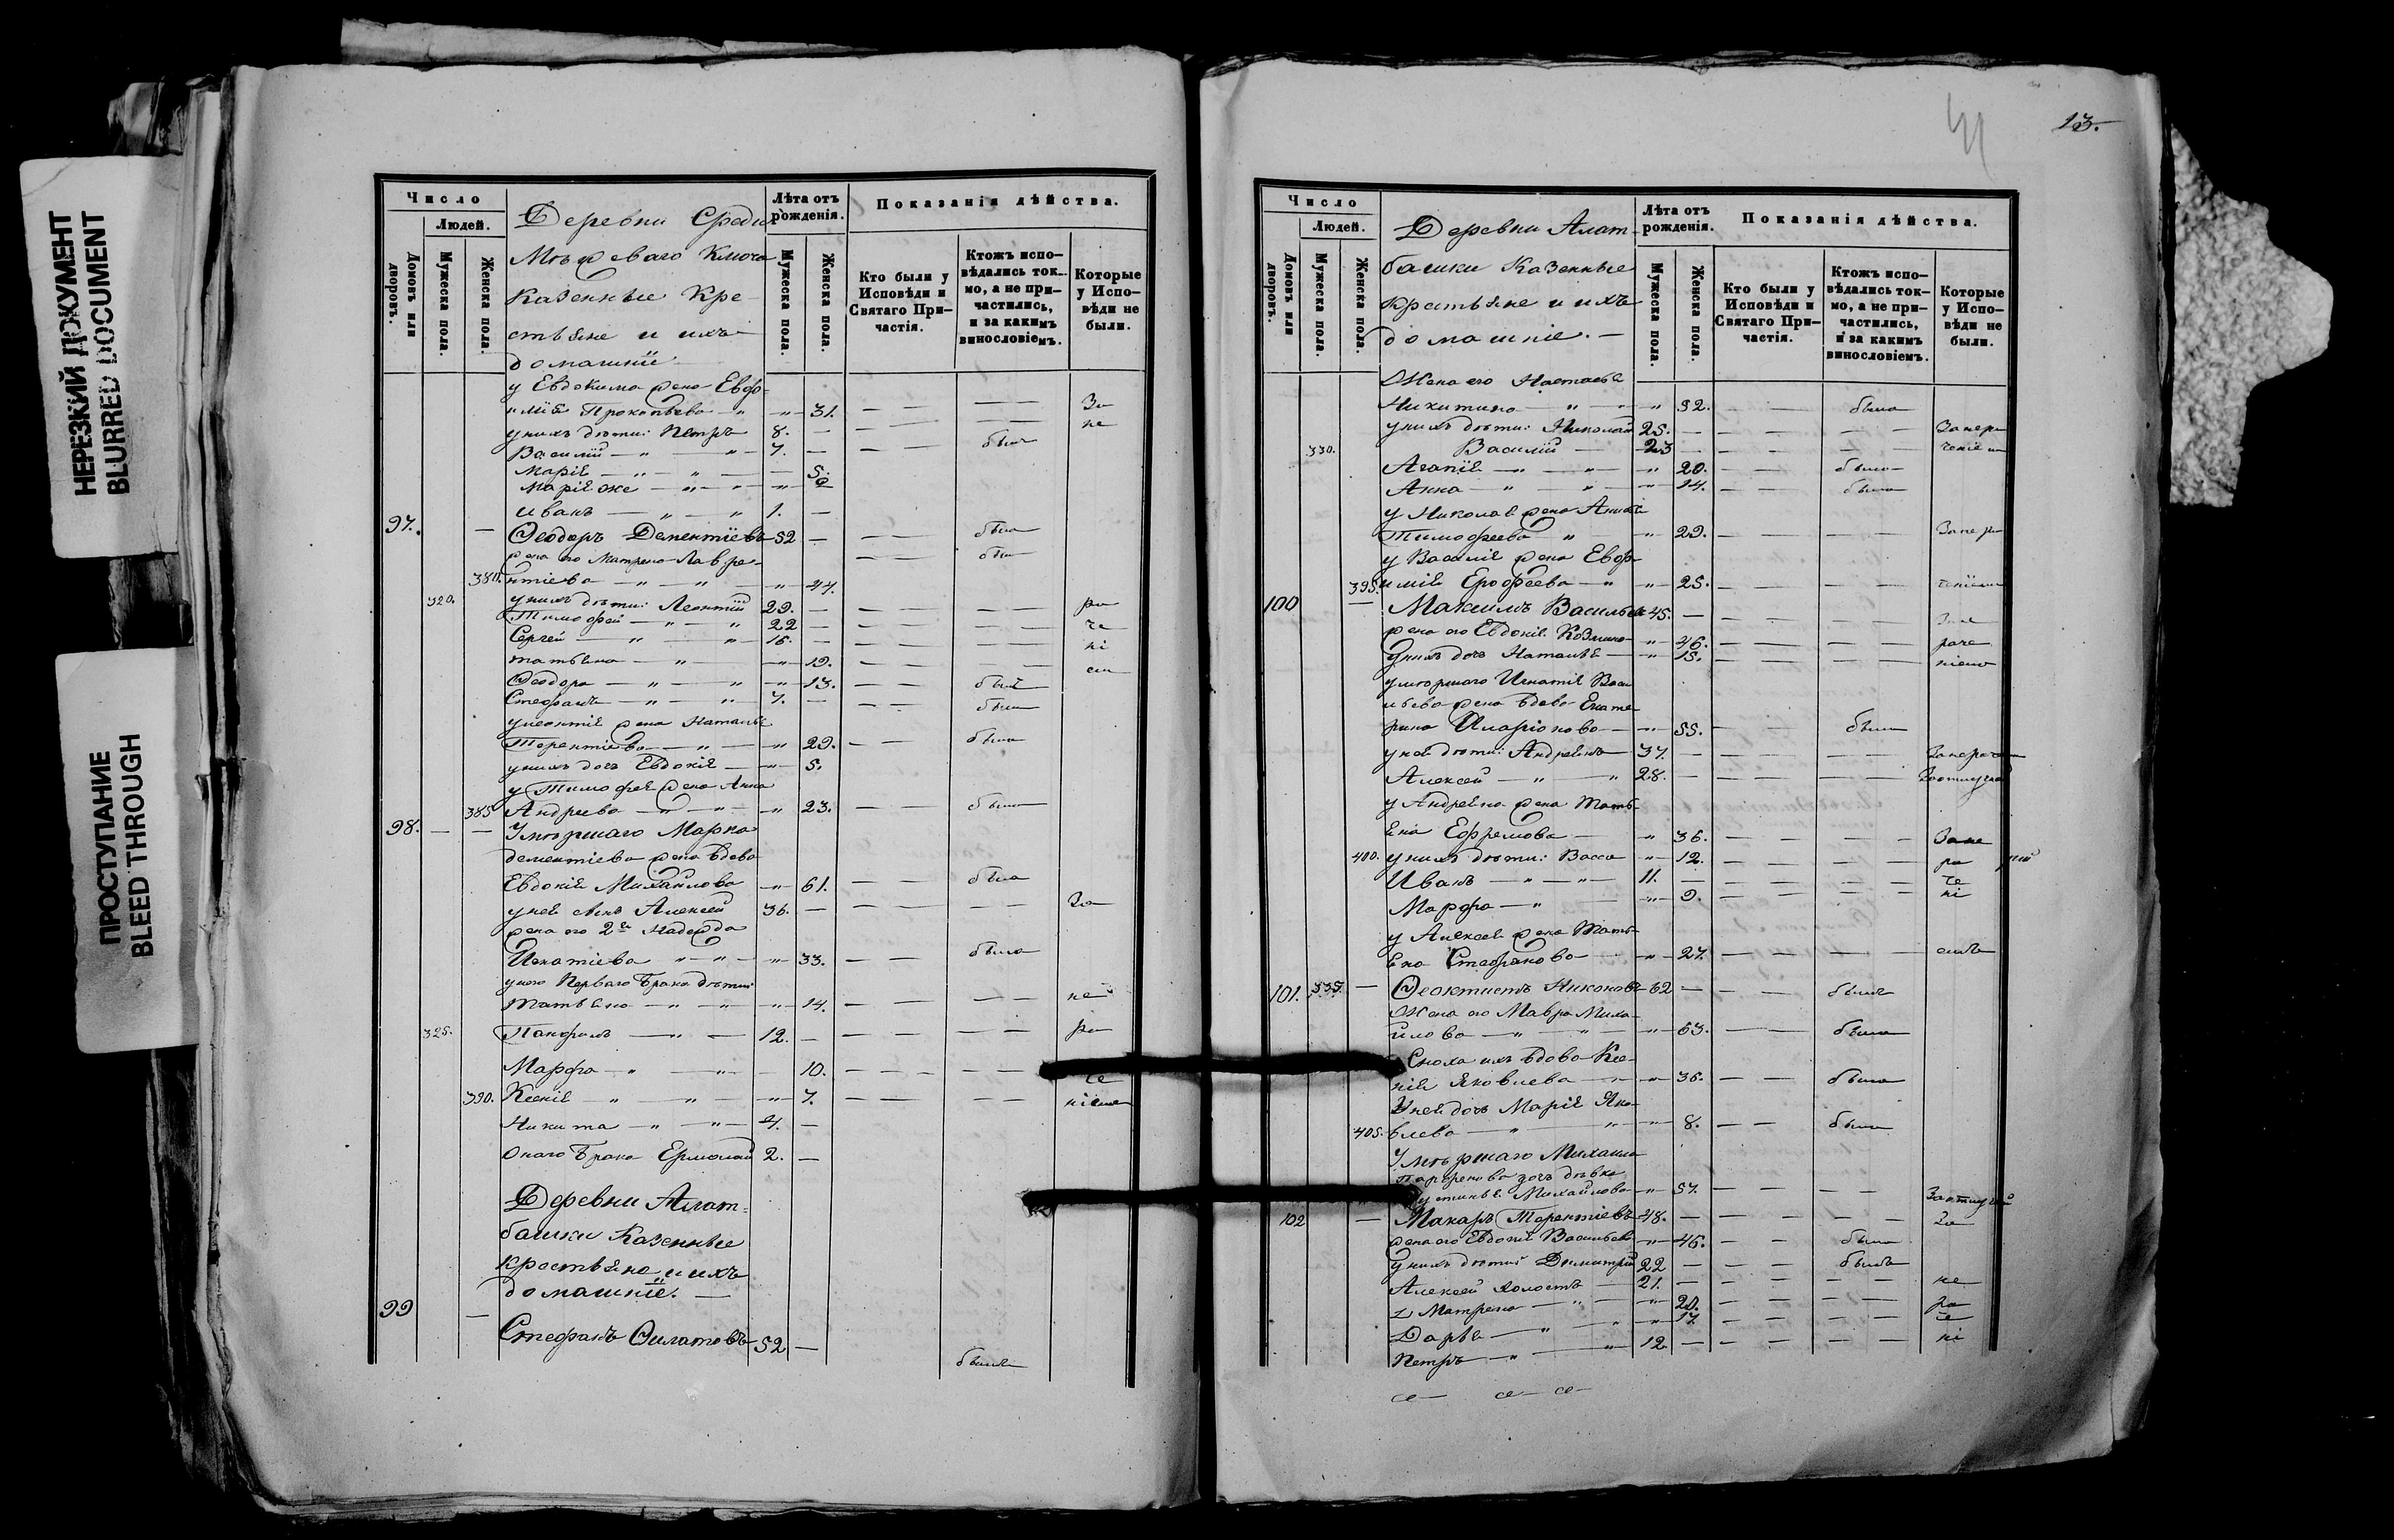 НЕРЕЗКИЙ ДОКУМЕНТ
BLURRED DOCUMENT
ПРОСТУПАНИЕ
BLEED THROUGH
Число
Людей.
Домовъ или дворовъ.
Мужеска пола.
Женска пола.
Деревни Средн
Ключа
Казенные Кре-
стьяне и ихъ
домашнiи
Лѣта отъ рожденія.
Мужеска пола.
Женска пола.
Показанія дѣйства.
Кто были у Исповѣди и Святаго Причастія.
Ктожъ исповѣдались токмо, а не причастились, и за какимъ винословіемъ.
Которые у Исповѣди не были.
у Евдокима жена Евф-
имія Прокопьева — " — 31. За
у нихъ дѣти: Петръ 8. — не
Василій — " — 7. — былъ
Марія — " — 5.
Марія же — "
Иванъ — " — 1. —
97. — Ѳеодоръ Дементіевъ 52 — был
жена его Матрена Лавре-
нтіева — " — 44.
320. у нихъ дѣти: Леонтій 29. — ра
Тимофей — " — 22 — че
Сергей — " — 16. — ні
Татьяна — " — 19. ем
Ѳеодора — " — 13.
Стефанъ — " — 7. —
у Леонтія жена Наталья
Терентіева — " — 29. была
у нихъ дочь Евдокія — 5.
у Тимофея жена Анна
385 Андреева — " — 23. была
98. — — Умѣршаго Марка
Дементіева жена вдова
Евдокія Михайлова — " — 61. была
у нея сынъ Алексей 36. — За
жена его 2я Надежда
Игнатіева — " — 33. была
у него перваго брака дѣти:
Татьяна — " — 14. не
325. Панфилъ — " — 12. — ра
Марфа — " — 10. че
390. Ксенія — " — 7. ніем
Никита — " — 4. —
Онаго брака Ермолай 2. —
Деревни Алат-
башки Казенные
крестьяне и ихъ
домашнiе. —
99 — Стефанъ Филатовъ 52 — былъ
13.
41
Число
Людей.
Домовъ или дворовъ.
Мужеска пола.
Женска пола.
Деревни Алат-
башки Казенные
крестьяне и ихъ
домашнiе. —
Лѣта отъ рожденія.
Мужеска пола.
Женска пола.
Показанія дѣйства.
Кто были у Исповѣди и Святаго Причастія.
Ктожъ исповѣдались токмо, а не причастились, и за какимъ винословіемъ.
Которые у Исповѣди не были.
Жена его Настасья
Никитина — " — 52. была
у нихъ дѣти: Николай 25. — Занера
330. Василій — 23 — ченіем
Агапія — " — 20. была
Анна — " — 14. была
у Николая жена
Тимофеева " — 22. Занера
у Василія жена Евф-
395. имія Ерофеева — " — 25. ченіем
100 — Максимъ Васильевъ 45. —
жена его Евдокія Козмина — " — 46. раче
у нихъ дочь Наталья — " — 15. ніемъ
умѣршаго Игнатія Васи-
льева жена вдова Екате-
рина Иларіонова — " — 55. была
у нея дѣти: Андреянъ 37. —
Алексей — " — 28. —
у Андреяна жена Тать-
яна Ефремова — " — 36. Зане
400. у нихъ дѣти: Васса — " — 12. ра
Иванъ — " — 11. — че
Марфа — " — 9. ні
у Алексея жена Тать-
яна Стефанова — " — 27. емъ
101. 335. — Ѳеоктистъ Никоновъ 62 — былъ
Жена его Мавра Миха-
йлова — " — 63. была
Сноха ихъ вдова Ксе-
нія Яковлева — " — 36. была
У нея дочь Марія Яко-
405. влева — " — 8. была
Умѣршаго Михаила
дочь дѣвка
Михайлова — " — 57.
102 — Макаръ Терентіевъ 48. — За
жена его Евдокія Васильева — " — 46. была
у нихъ дѣти: Димитрій 22 — былъ
Алексей холостъ — 21. — не
Матрена — " — 20. ра
Дарья — " — 17. че
Петръ — " — 12 — ні